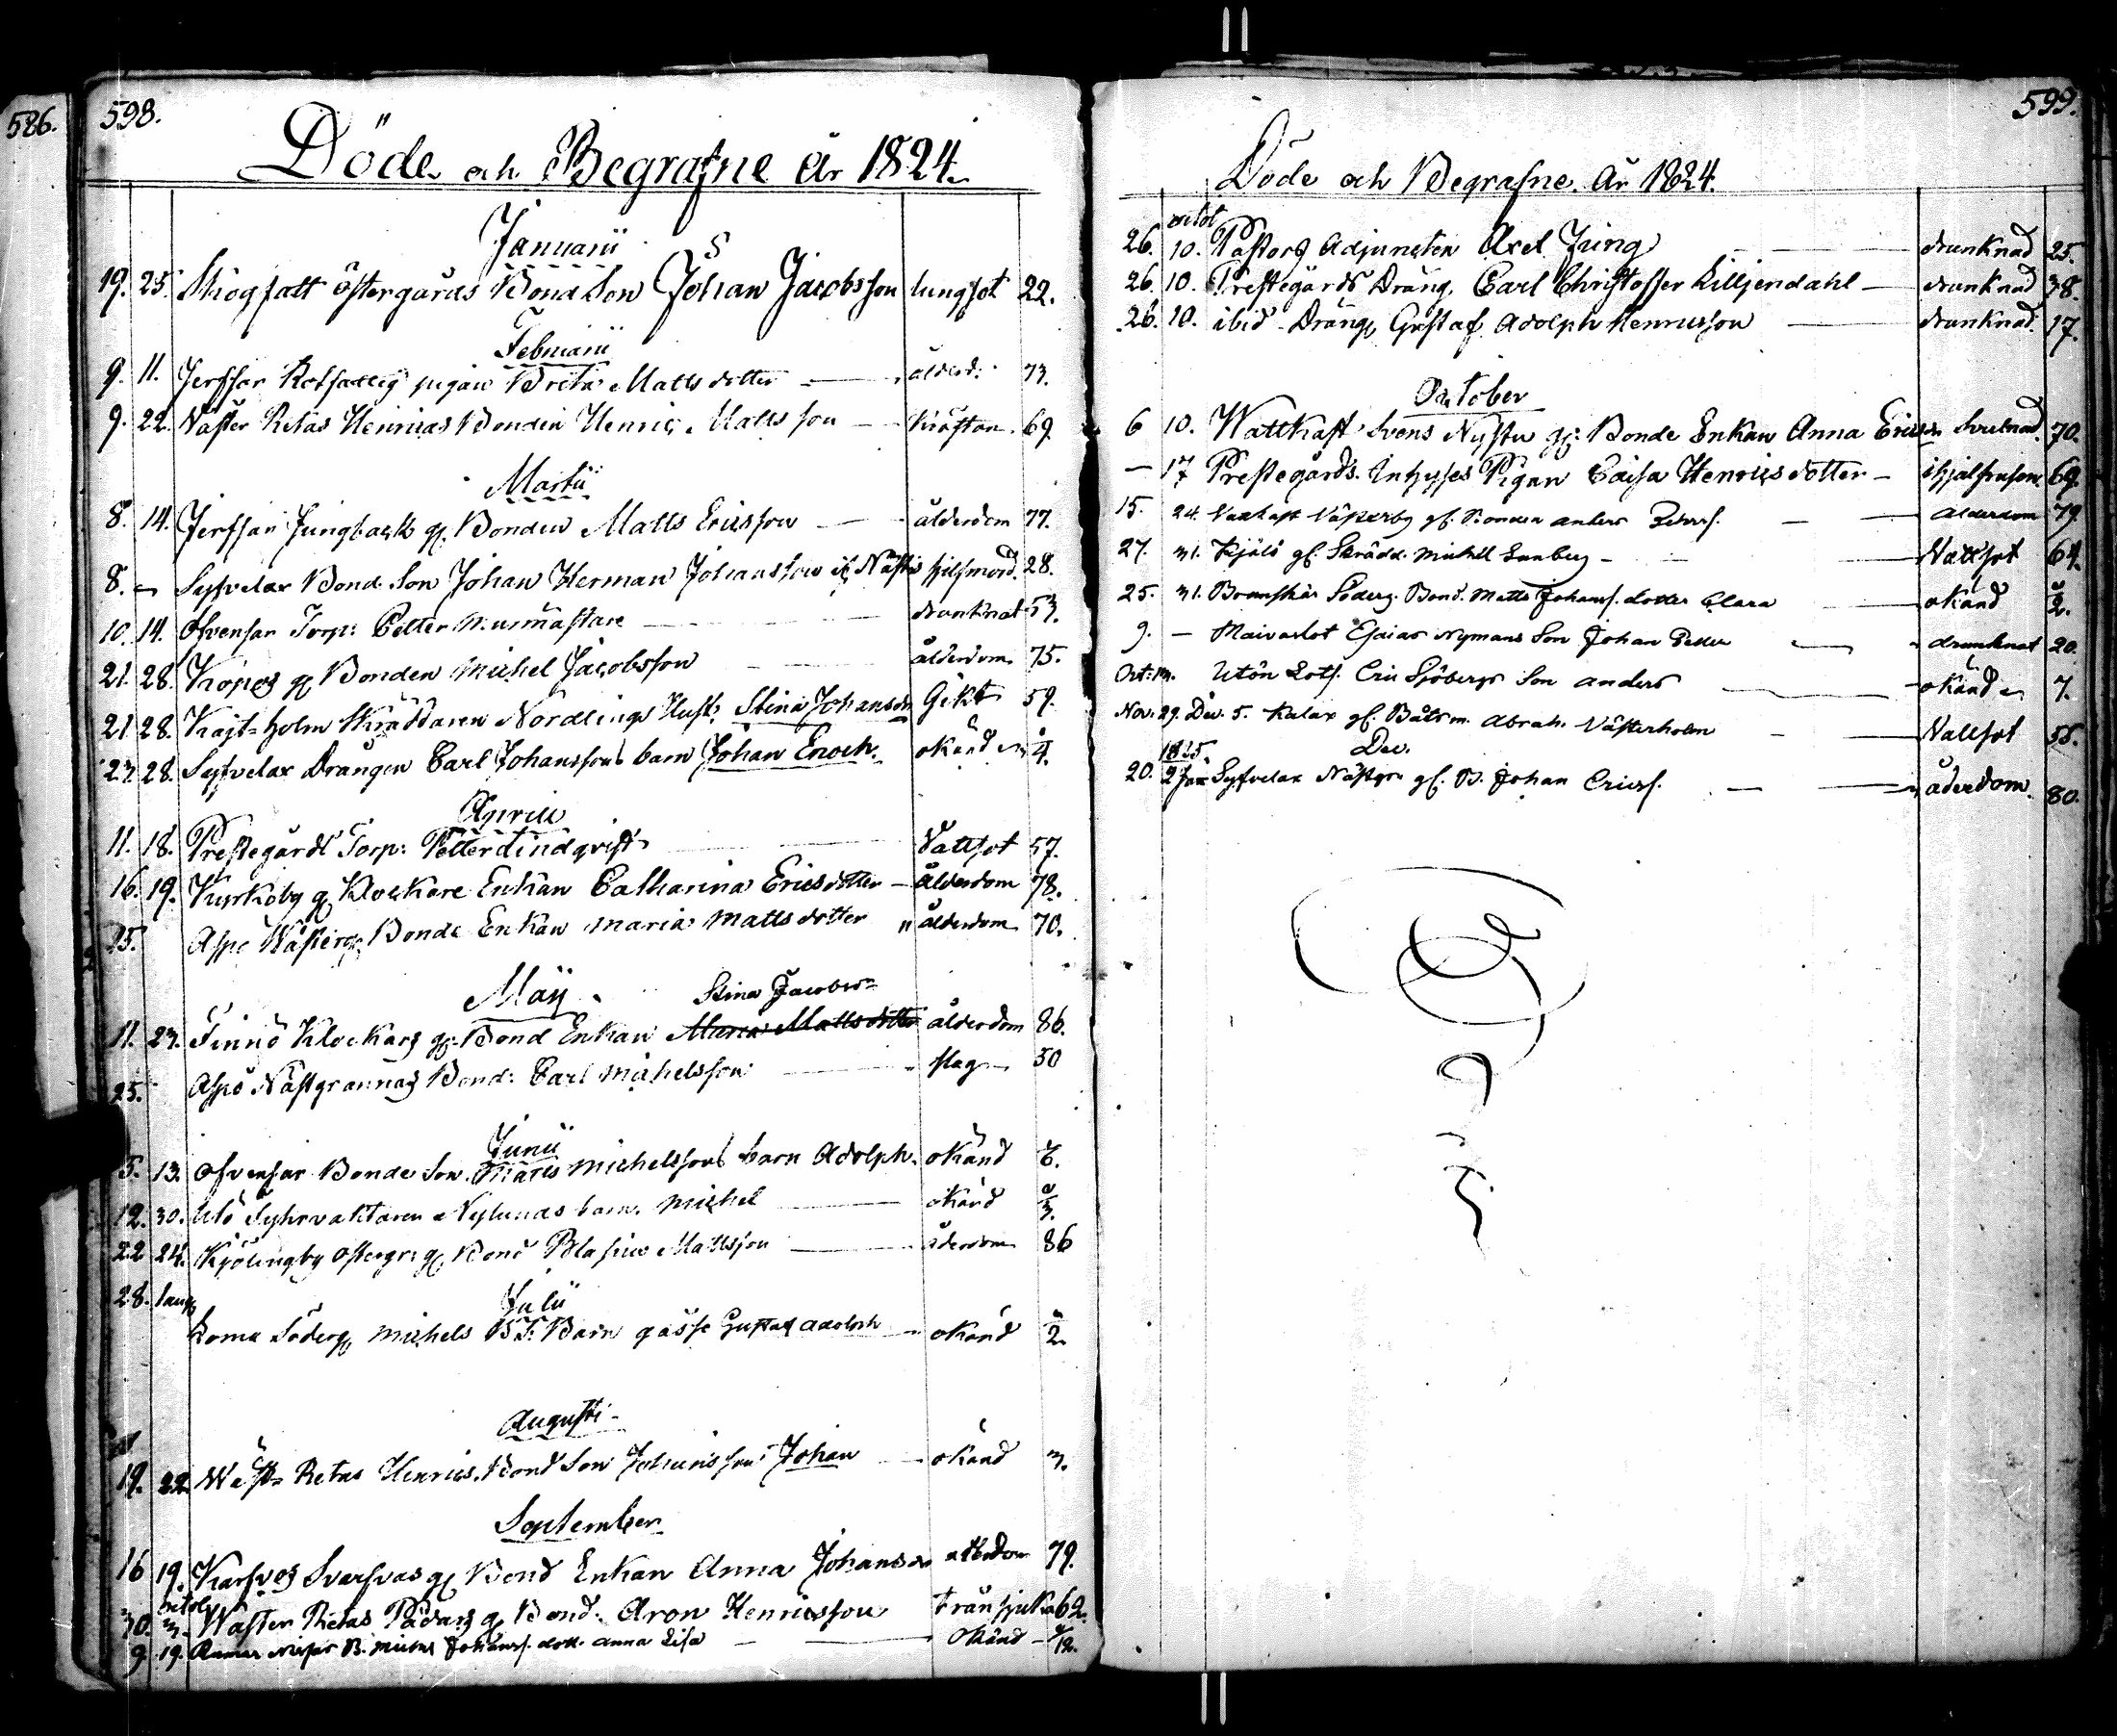 586.
598.
Döde och Begrafne År 1824.
Januarii
19. 25. Skogsatt östergårds Bond Son Johan Jacobsson lungsot 22.
Februarii
9. 11. Jerfsar pigan Brita Matts dotter ålderd: 73.
9. 22. Väster Retas Henricas Bonden Henric Matts son Kräftan. 69.
Martii
8. 14. Jerfsar Jungback gl. Bonden Matts Ericsson ålderdom 77.
8. Syfvelax Bond Son Johan Herman Johansson sjelfmord. 28.
10. 14. Ofvensar Torp: Petter Murmästare drunknat 53.
21. 28. Kopos gl Bonden Michel Jacobsson ålderdom 75.
21 28. Kajt-holm Skräddaren Nordlings Hust: Stina Johansdr Gikt 59.
23. 28. Syfvelax Drängen Carl Johanssons barn Johan Enoch. okänd 4.
Aprill
11. 18. Prestegårds Torp: Petter Lindqvist Vattsot 57.
16. 19. Kyrkoby gl Klockare Enkan Catharina Ericsdotter ålderdom 78.
25. Aspö Västerg: Bonde Enkan Maria Mattsdotter ålderdom 70.
Maÿ
Stina Jacobsdr
11. 23. Finnö Klockars gl: Bond Enkan Maria Mattsdotter ålderdom 86.
25. Aspö Nästgrannas Bond: Carl Michelsson slag 50
Junii
5. 13. Ofvensar Bonde Son Matts Michelssons barn Adolph. okänd 6.
12. 30. Utö Fyhrvaktaren Nylunds barn Michel okänd 3.
22 24. Kjölingby Österg: gl Bond Blasius Mattsson ålderdom 86
28. Julii
Söderg Michels B: S: Barn gåsse Gustaf Adolph okänd 2.
Augusti
19. 22. Wäst Retas Henrics Bond Son Johansson Johan okänd 3.
September
16 19. Karsvos Svarsvas gl Bond Enkan Anna Johansdr ålderdom 79.
octob
30. 3. Wäster Retas Pädars gl Bond: Aron Henricsson Trånsjuka 62.
9 19. B. Michel Johanss. dott. Anna Lisa Okänd 12.
599.
Döde och Begrafne År 1824.
octob
26. 10. Pastors Adjuncten Axel Jung drunknad 25.
26. 10. Prestegårds Dräng. Carl Christoffer Lilljendahl drunknad 38.
26. 10. ibid Dräng Gustaf Adolph Henricsson drunknad. 17.
October
6 10. Wattkast Svens Nystu gl: Bonde Enkan Anna Ericsdr Svulnad. 70.
— 17 Prestegårds. Inhyses Pigan Caisa Henricsdotter ihjälfrusen 69.
15. 24. Vattkast Västerby gl. Bonden Anders Peterss. ålderdom 79.
27. 31. Kjälö gl. Skrädd. Michell Lunberg Vattsot 64.
25. 31. Bromskär Söderg. Bond. Matts Johanss. dotter Clara okänd 2.
9. — Esaias Nymans Son Johan Petter drunknat 20.
Oct: 13. Utön Lots. Eric Sjöbergs Son Anders okänd 7.
Nov. 29. Dec. 5. Kalax gl. Båtsm. Abrah. Västerholm Vattsot 55.
Dec.
1825.
20. 2 Jan Syfvelax Nästgr. gl. B. Johan Ericss. åderdom. 80.